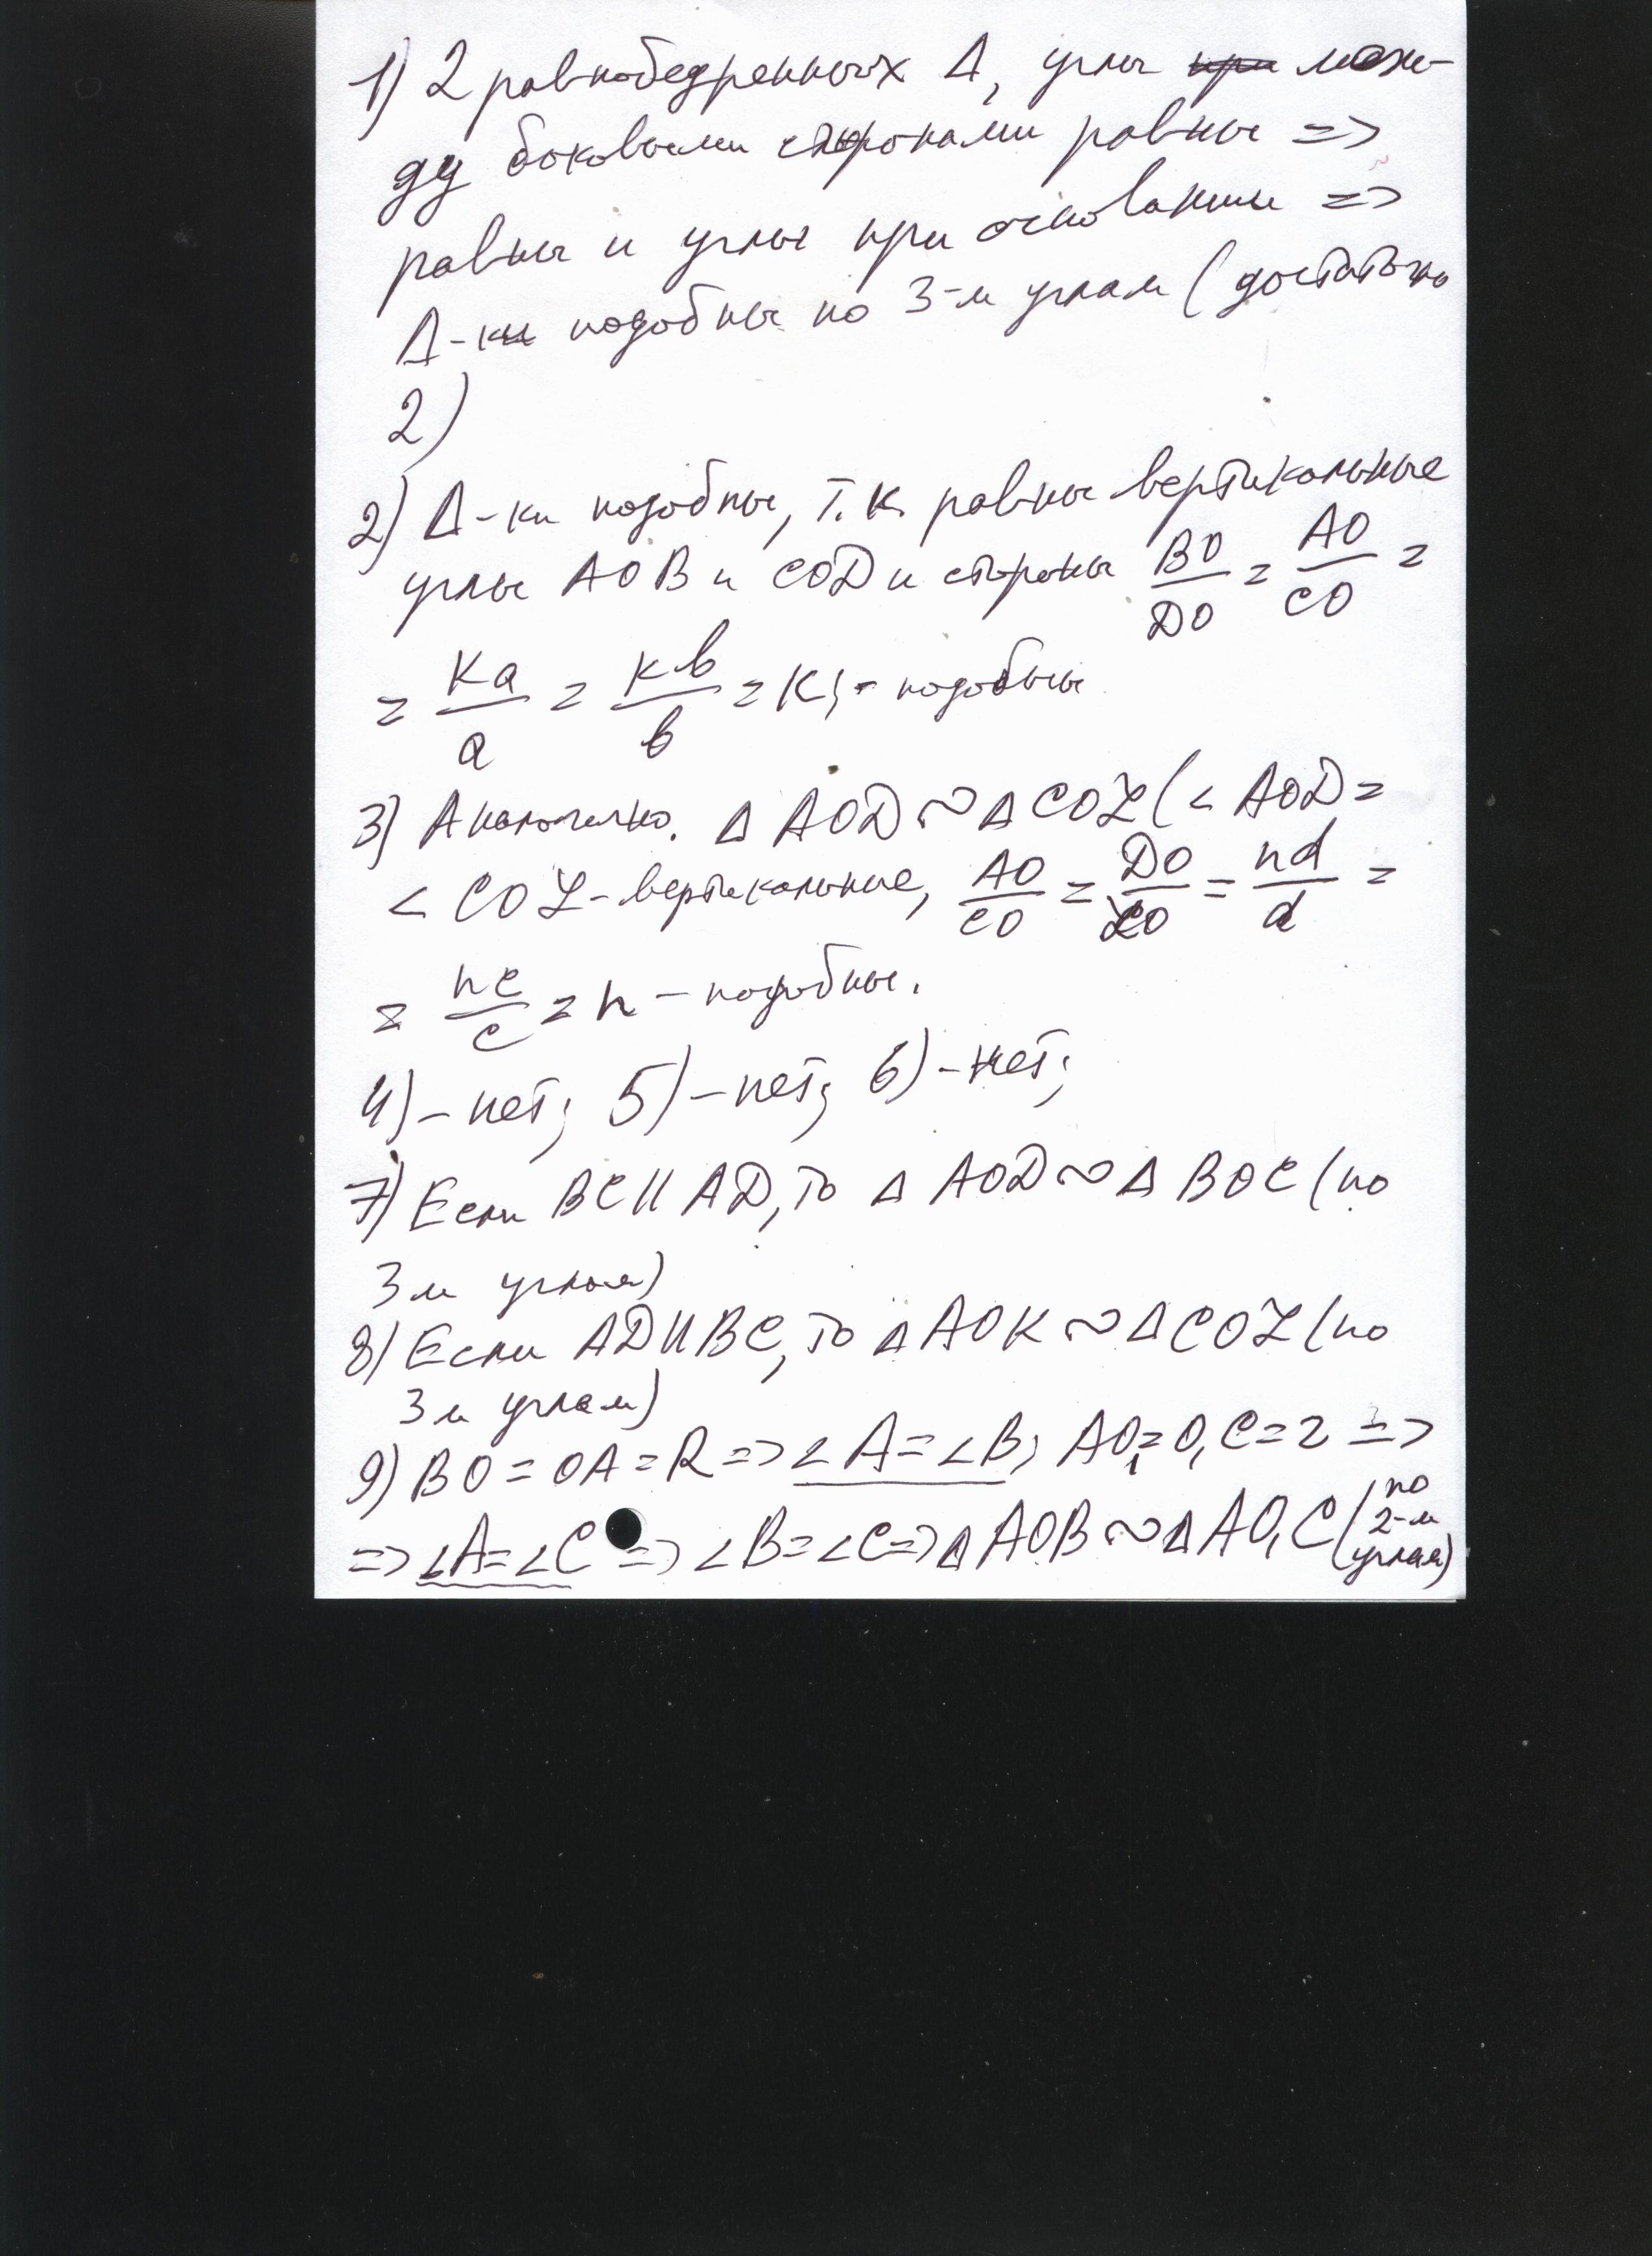 1) 2 равнобедренных Δ, углы при меж-
ду боковыми сторонами равны =>
равны и углы при основании =>
Δ-ки подобны по 3-м углам (достаточно
2)
2) Δ-ки подобны, т.к. равны вертикальные
углы AOB и COD и стороны BO/DO = AO/CO =
= ka/a = kb/b = k, - подобны
3) Аналогично. Δ AOD ~ Δ COL (< AOD =
< COL - вертикальные, AO/CO = DO/LO = nd/d =
= nc/c = n - подобны.
4) - нет; 5) - нет; 6) - нет;
7) Если BC || AD, то Δ AOD ~ Δ BOC (по
3м углам)
8) Если AD || BC, то Δ AOK ~ Δ COL (по
3м углам)
9) BO = OA = R => < A = < B; AO₁ = O₁C = r =>
=> < A = < C => < B = < C => Δ AOB ~ Δ AO₁C (по 2-м углам)